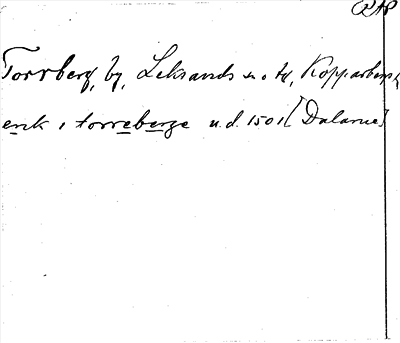 Torrberg, by, Leksands sn o td, Kopparbergs
enk i torreberge u.d. 1501 [Dalarne]